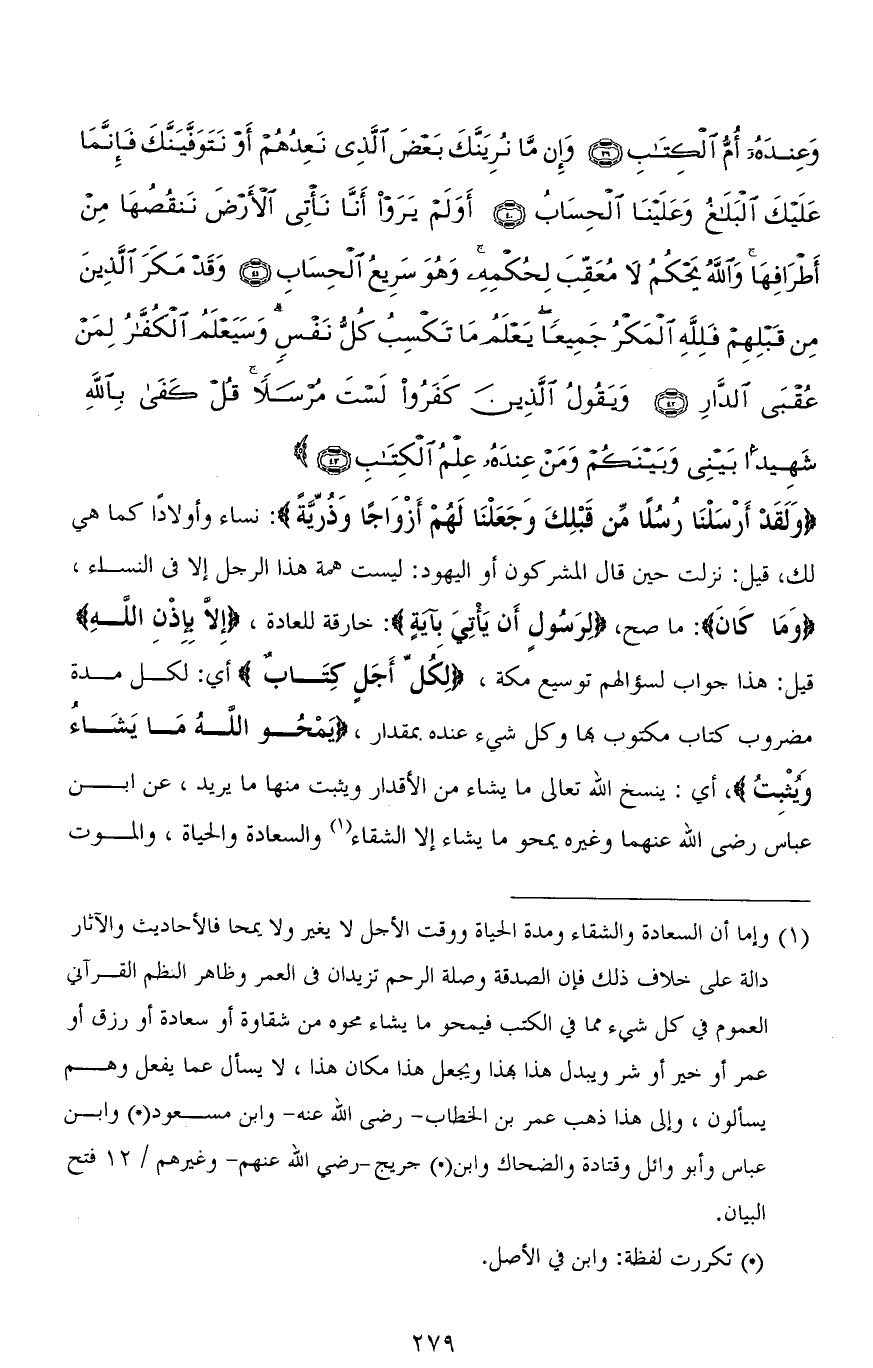 وَعِندَهُۥٓ أُمُّ ٱلْكِتَٰبِ ﴿٣٩﴾ وَإِن مَّا نُرِيَنَّكَ بَعْضَ ٱلَّذِى نَعِدُهُمْ أَوْ نَتَوَفَّيَنَّكَ فَإِنَّمَا
عَلَيْكَ ٱلْبَلَٰغُ وَعَلَيْنَا ٱلْحِسَابُ ﴿٤٠﴾ أَوَلَمْ يَرَوْا۟ أَنَّا نَأْتِى ٱلْأَرْضَ نَنقُصُهَا مِنْ
أَطْرَافِهَا ۚ وَٱللَّهُ يَحْكُمُ لَا مُعَقِّبَ لِحُكْمِهِۦ ۚ وَهُوَ سَرِيعُ ٱلْحِسَابِ ﴿٤١﴾ وَقَدْ مَكَرَ ٱلَّذِينَ
مِن قَبْلِهِمْ فَلِلَّهِ ٱلْمَكْرُ جَمِيعًا ۖ يَعْلَمُ مَا تَكْسِبُ كُلُّ نَفْسٍ ۗ وَسَيَعْلَمُ ٱلْكُفَّٰرُ لِمَنْ
عُقْبَى ٱلدَّارِ ﴿٤٢﴾ وَيَقُولُ ٱلَّذِينَ كَفَرُوا۟ لَسْتَ مُرْسَلًا ۚ قُلْ كَفَىٰ بِٱللَّهِ
شَهِيدًۢا بَيْنِى وَبَيْنَكُمْ وَمَنْ عِندَهُۥ عِلْمُ ٱلْكِتَٰبِ ﴿٤٣﴾ ﴾
﴿وَلَقَدْ أَرْسَلْنَا رُسُلًا مِّن قَبْلِكَ وَجَعَلْنَا لَهُمْ أَزْوَاجًا وَذُرِّيَّةً﴾: نساء وأولادًا كما هي
لك، قيل: نزلت حين قال المشركون أو اليهود: ليست همة هذا الرجل إلا فى النساء ،
﴿وَمَا كَانَ﴾: ما صح، ﴿لِرَسُولٍ أَن يَأْتِيَ بِآيَةٍ﴾: خارقة للعادة ، ﴿إِلاَّ بِإِذْنِ اللَّهِ﴾
قيل: هذا جواب لسؤالهم توسيع مكة ، ﴿لِكُلِّ أَجَلٍ كِتَابٌ ﴾ أي: لكل مدة
مضروب كتاب مكتوب بها وكل شيء عنده بمقدار ، ﴿يَمْحُو اللَّهُ مَا يَشَاءُ
وَيُثْبِتُ ﴾، أي : ينسخ الله تعالى ما يشاء من الأقدار ويثبت منها ما يريد ، عن ابن
عباس رضى الله عنهما وغيره يمحو ما يشاء إلا الشقاء(١) والسعادة والحياة ، والموت
(١) وإما أن السعادة والشقاء ومدة الحياة ووقت الأجل لا يغير ولا يمحا فالأحاديث والآثار
دالة على خلاف ذلك فإن الصدقة وصلة الرحم تزيدان فى العمر وظاهر النظم القرآني
العموم في كل شيء مما في الكتب فيمحو ما يشاء محوه من شقاوة أو سعادة أو رزق أو
عمر أو خير أو شر ويبدل هذا بهذا ويجعل هذا مكان هذا ، لا يسأل عما يفعل وهم
يسألون ، وإلى هذا ذهب عمر بن الخطاب- رضى الله عنه- وابن مسعود(*) وابن
عباس وأبو وائل وقتادة والضحاك وابن(*) جريج -رضي الله عنهم- وغيرهم / ١٢ فتح
البيان.
(*) تكررت لفظة: وابن في الأصل.
٢٧٩